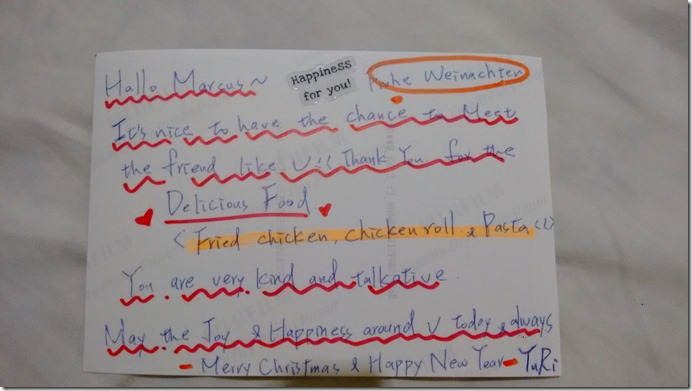 Hallo Marcus~
Happiness
for you!
Frohe Weinachten
It's nice to have the chance to Meet
the friend like U :< Thank You for the
Delicious Food
< Fried chicken, chicken roll & Pasta
You are very kind and talkative
May the Joy & Happiness around U today & always
- Merry Christmas & Happy New Year - YuRi